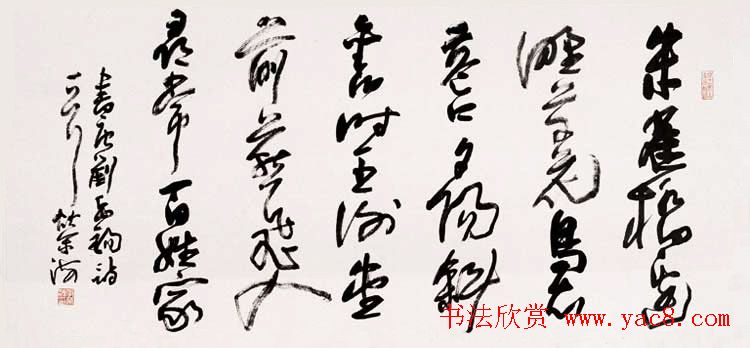 朱雀橋邊
野草花烏衣
巷口夕陽斜
舊時王謝堂
前燕飛入
尋常百姓家
書唐劉禹錫詩
书法欣赏 www.yac8.com